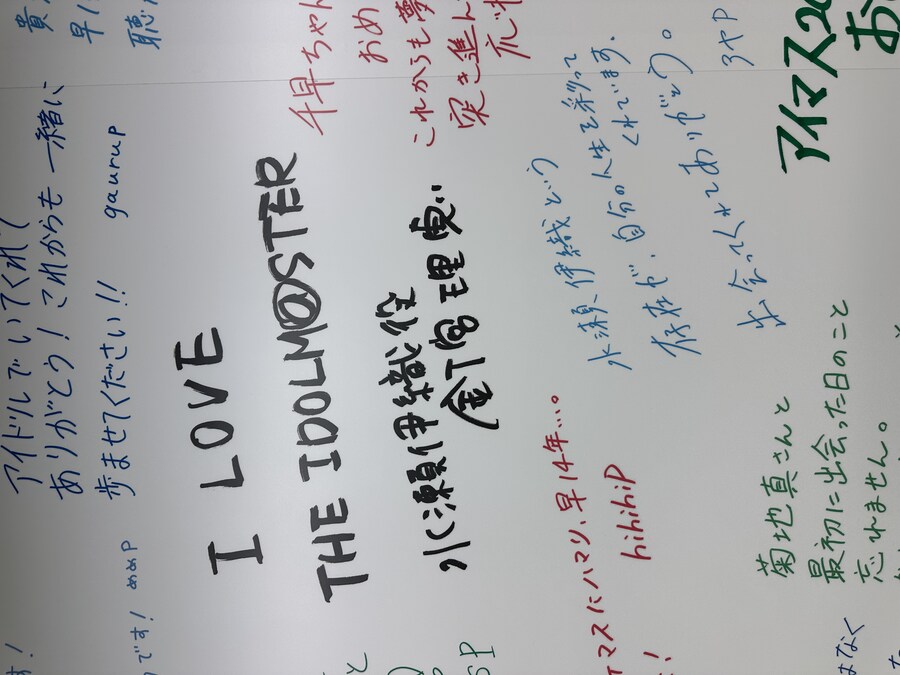 アイドルでいてくれて
ありがとう！これからも一緒に
歩ませてください!! gaurup
です！ めぬP
I LOVE
THE IDOLM@STER
水瀬伊織役
千早ちゃん
おめ
これからも夢
突き進ん
水瀬伊織という
存在が、自分の人生を彩って
くれています。
出会ってくれてありがとう。
マスにハマり、早14年…。
hihihiP
アイマス20
お
菊地真さんと
最初に出会った日のこと
忘れません。
はなく